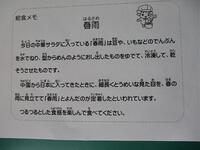 給食メモ
はるさめ
春雨
今日の中華サラダに入っている「春雨」は豆や、いもなどのでんぷん
を水でねり、型からめんのようにおし出したものをゆでて、冷凍して、乾
そうさせたものです。
中国から日本に入ってきたときに、細長くとうめいな見た目を、春の
雨に見立てて「春雨」とよんだのが定着したといわれています。
つるつるとした食感を楽しんで食べてください。